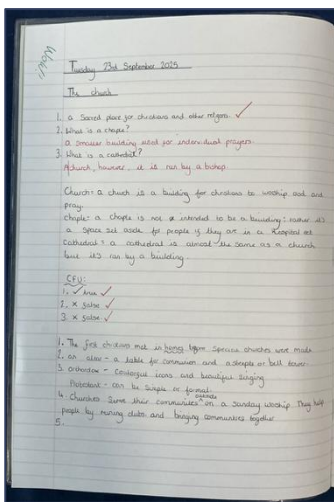 Tuesday 23rd September 2025
The church
1. a Sacred place for christians and other religons. ✓
2. What is a chaple?
a smaller building used for individual prayers.
3. What is a cathedral?
A church, however, it is run by a bishop.
Church= a church is a building for christians to worship god and
pray.
chaple= a chaple is not intended to be a building: rather it's
a space set aside for people if they are in a hospital ect
Cathedral = a cathedral is almost the same as a church
but it's run by a building.
CFU:
1. ✓ true ✓
2. x false ✓
3. x false ✓
1. The first christians met in homes before special churches were made
2. an altar - a table for communion and a steeple or bell tower.
3. orthodox - Colourful icons and beautiful singing
Protestant - can be simple or formal.
4. Churches Serve their communities outside on a Sunday worship. They help
people by running clubs and bringing communities together
5.